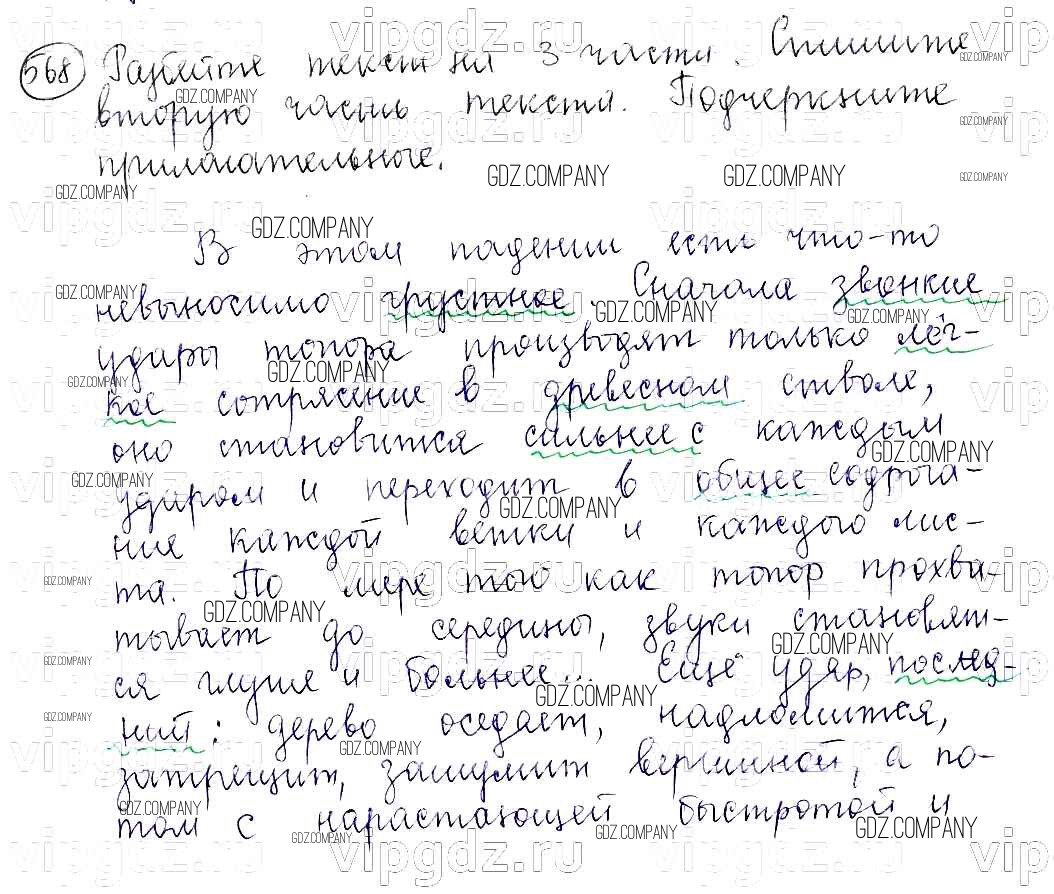 568 Разбейте текст на 3 части. Спишите
вторую часть текста. Подчеркните
прилагательные.
В этом падении есть что-то
невыносимо грустное. Сначала звонкие
удары топора производят только лёг-
кое сотрясение в древесном стволе,
оно становится сильнее с каждым
ударом и переходит в общее содрога-
ние каждой ветки и каждого лис-
та. По мере того как топор прохва-
тывает до середины, звуки становят-
ся глуше и больнее... Ещё удар, послед-
ний: дерево оседает, надломится,
затрещит, зашумит вершиной, а по-
том с нарастающей быстротой и